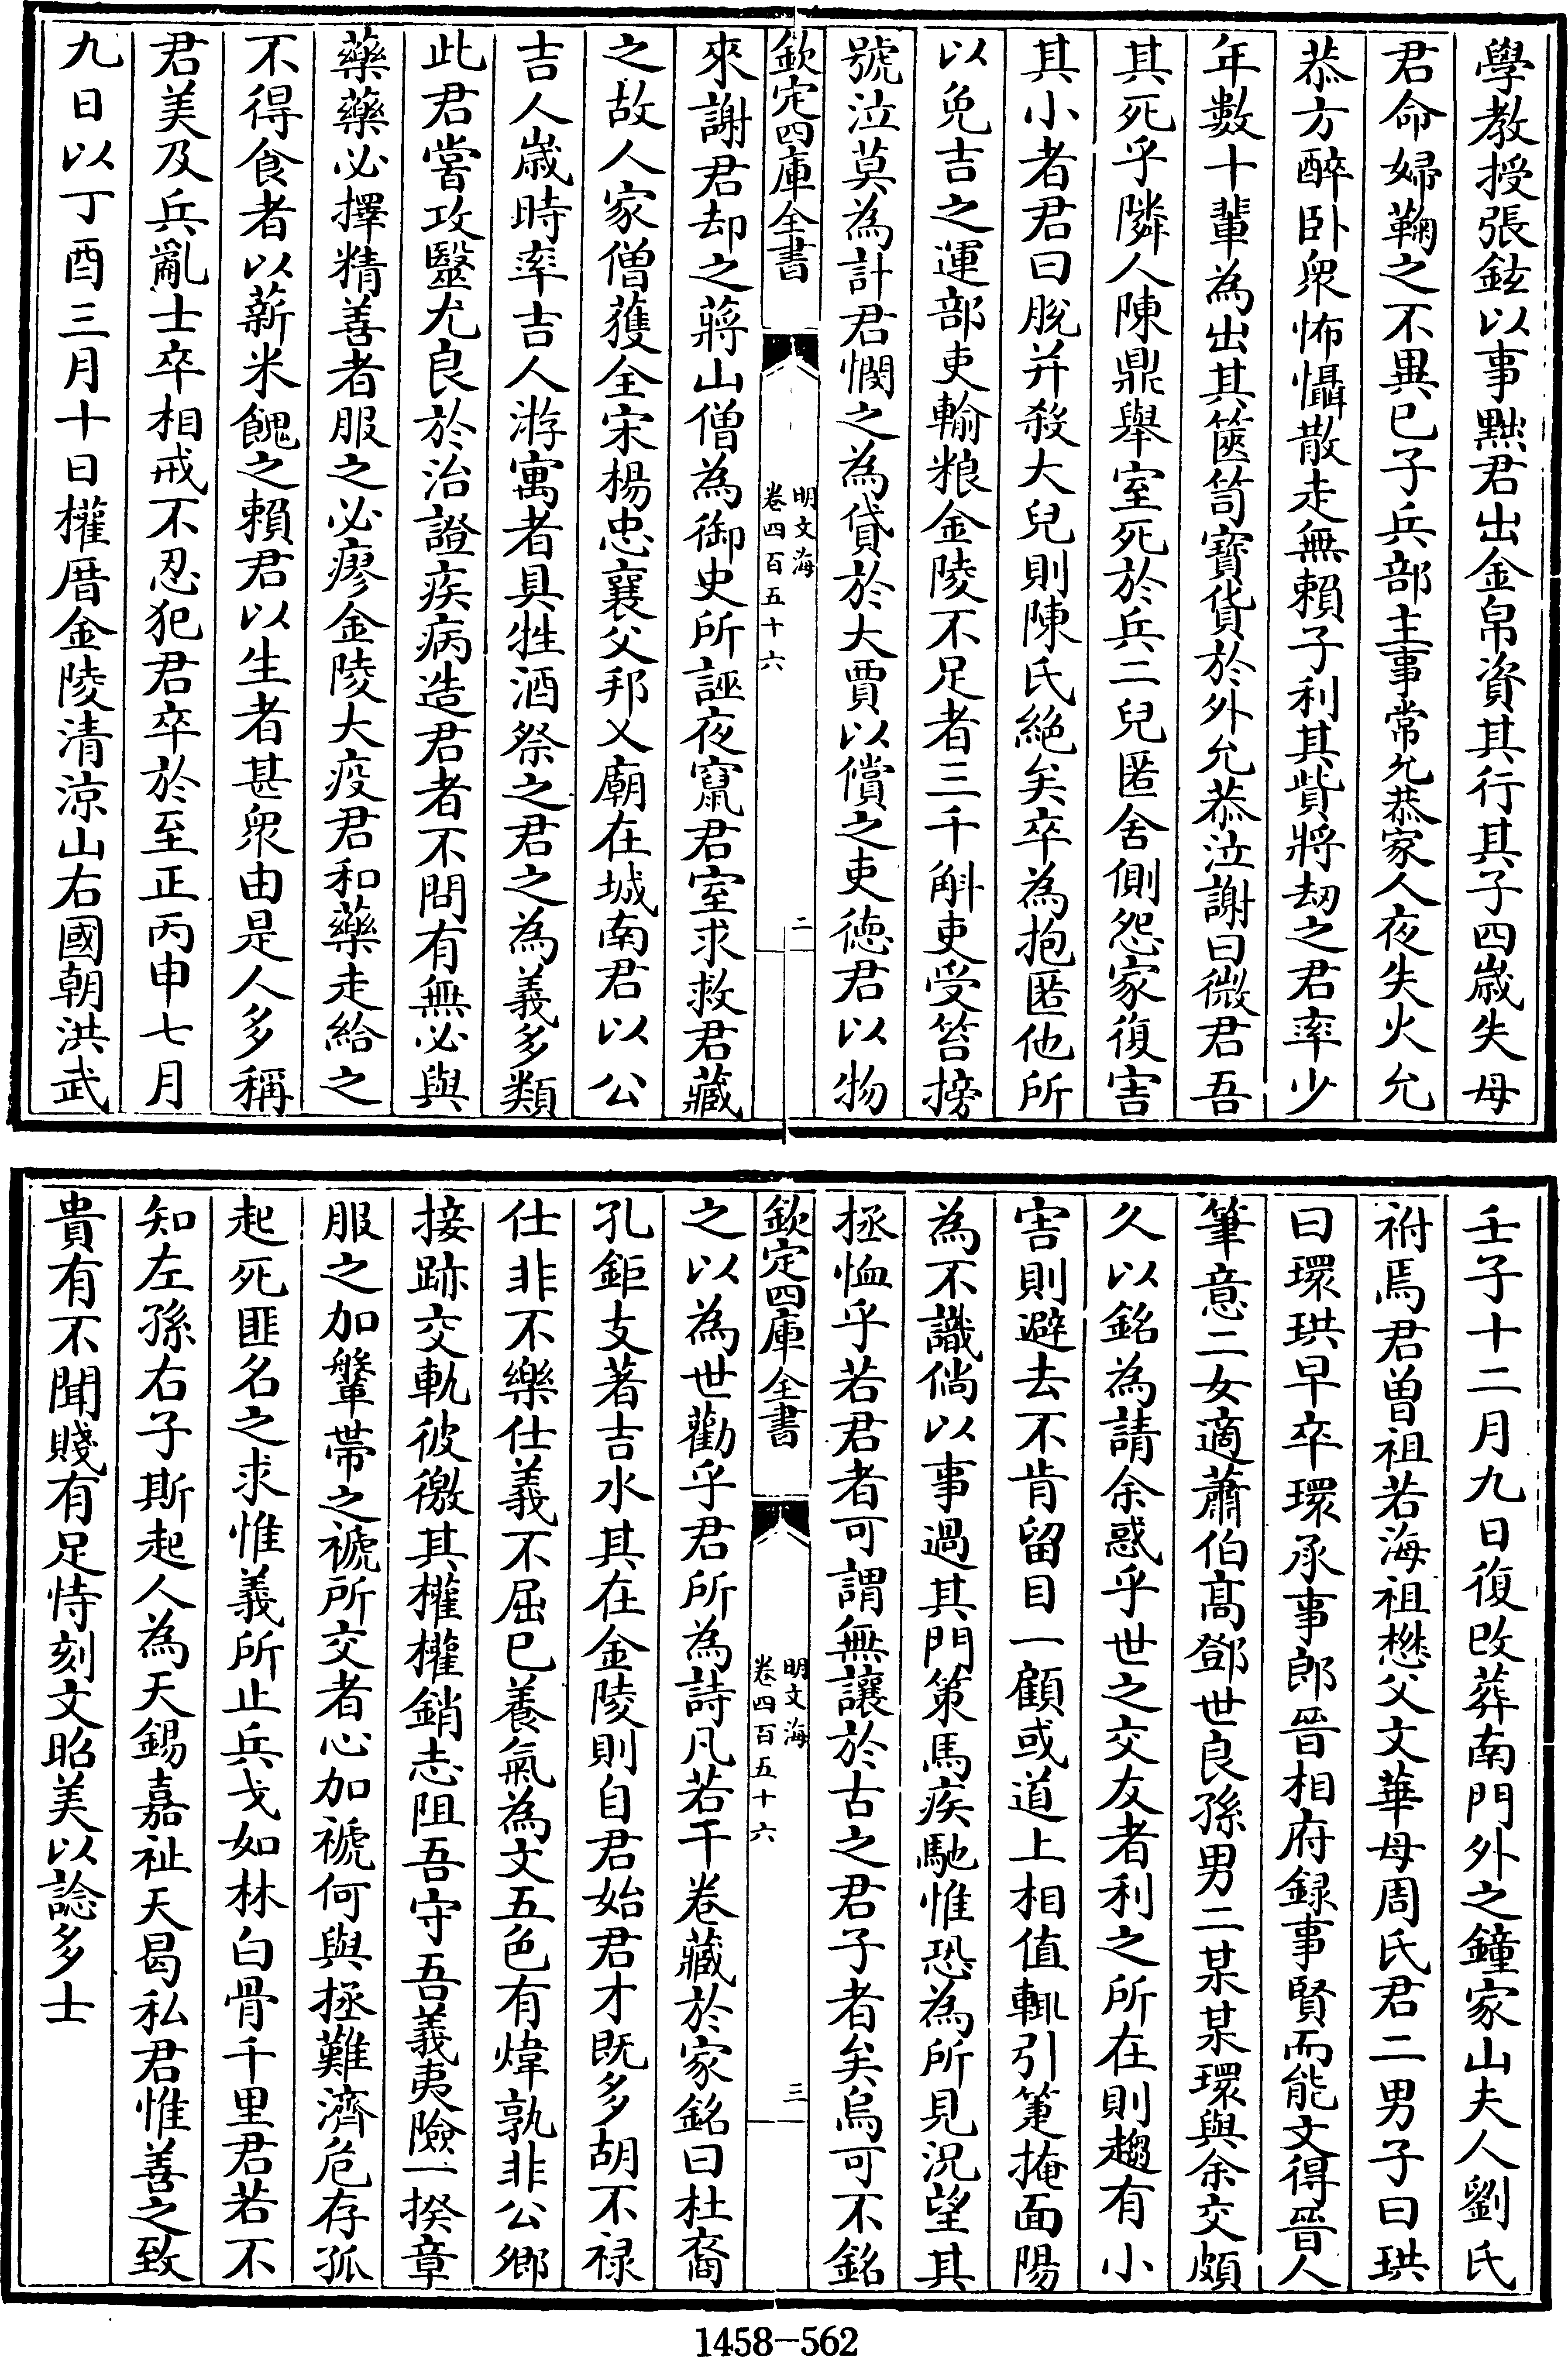 學教授張鉉以事黜君出金帛資其行其子四歲失母
君命婦鞠之不異已子兵部主事常允恭家人夜失火允
恭方醉卧衆怖懾散走無賴子利其貲將刼之君率少
年數十輩為出其篋笥寶貨於外允恭泣謝曰微君吾
其死乎隣人陳鼎舉室死於兵二兒匿舍側怨家復害
其小者君曰脱并殺大兒則陳氏絶矣卒為抱匿他所
以免吉之運部吏輸粮金陵不足者三千斛吏受笞搒
號泣莫為計君憫之為貸於大賈以償之吏德君以物
欽定四庫全書
明文海
卷四百五十六
二
來謝君却之蔣山僧為御史所誣夜竄君室求救君藏
之故人家僧獲全宋楊忠襄父邦乂廟在城南君以公
吉人歲時率吉人游寓者具牲酒祭之君之為義多類
此君嘗攻毉尤良於治證疾病造君者不問有無必與
藥藥必擇精善者服之必瘳金陵大疫君和藥走給之
不得食者以薪米餽之賴君以生者甚衆由是人多稱
君美及兵亂士卒相戒不忍犯君卒於至正丙申七月
九日以丁酉三月十日權厝金陵清涼山右國朝洪武
壬子十二月九日復改葬南門外之鐘家山夫人劉氏
祔焉君曽祖若海祖懋父文華母周氏君二男子曰珙
曰環珙早卒環承事郎晉相府録事賢而能文得晉人
筆意二女適蕭伯髙鄧世良孫男二某某環與余交頗
久以銘為請余惑乎世之交友者利之所在則趨有小
害則避去不肯留目一顧或道上相值輒引箑掩面陽
為不識倘以事過其門策馬疾馳惟恐為所見況望其
拯恤乎若君者可謂無讓於古之君子者矣烏可不銘
欽定四庫全書
明文海
卷四百五十六
三
之以為世勸乎君所為詩凡若干卷藏於家銘曰杜裔
孔鉅支著吉水其在金陵則自君始君才既多胡不禄
仕非不樂仕義不屈已養氣為文五色有煒孰非公鄉
接跡交軌彼徼其權權銷志阻吾守吾義夷險一揆章
服之加鞶帶之褫所交者心加褫何與拯難濟危存孤
起死匪名之求惟義所止兵戈如林白骨千里君若不
知左孫右子斯起人為天錫嘉祉天曷私君惟善之致
貴有不聞賤有足恃刻文昭美以諗多士
1458-562